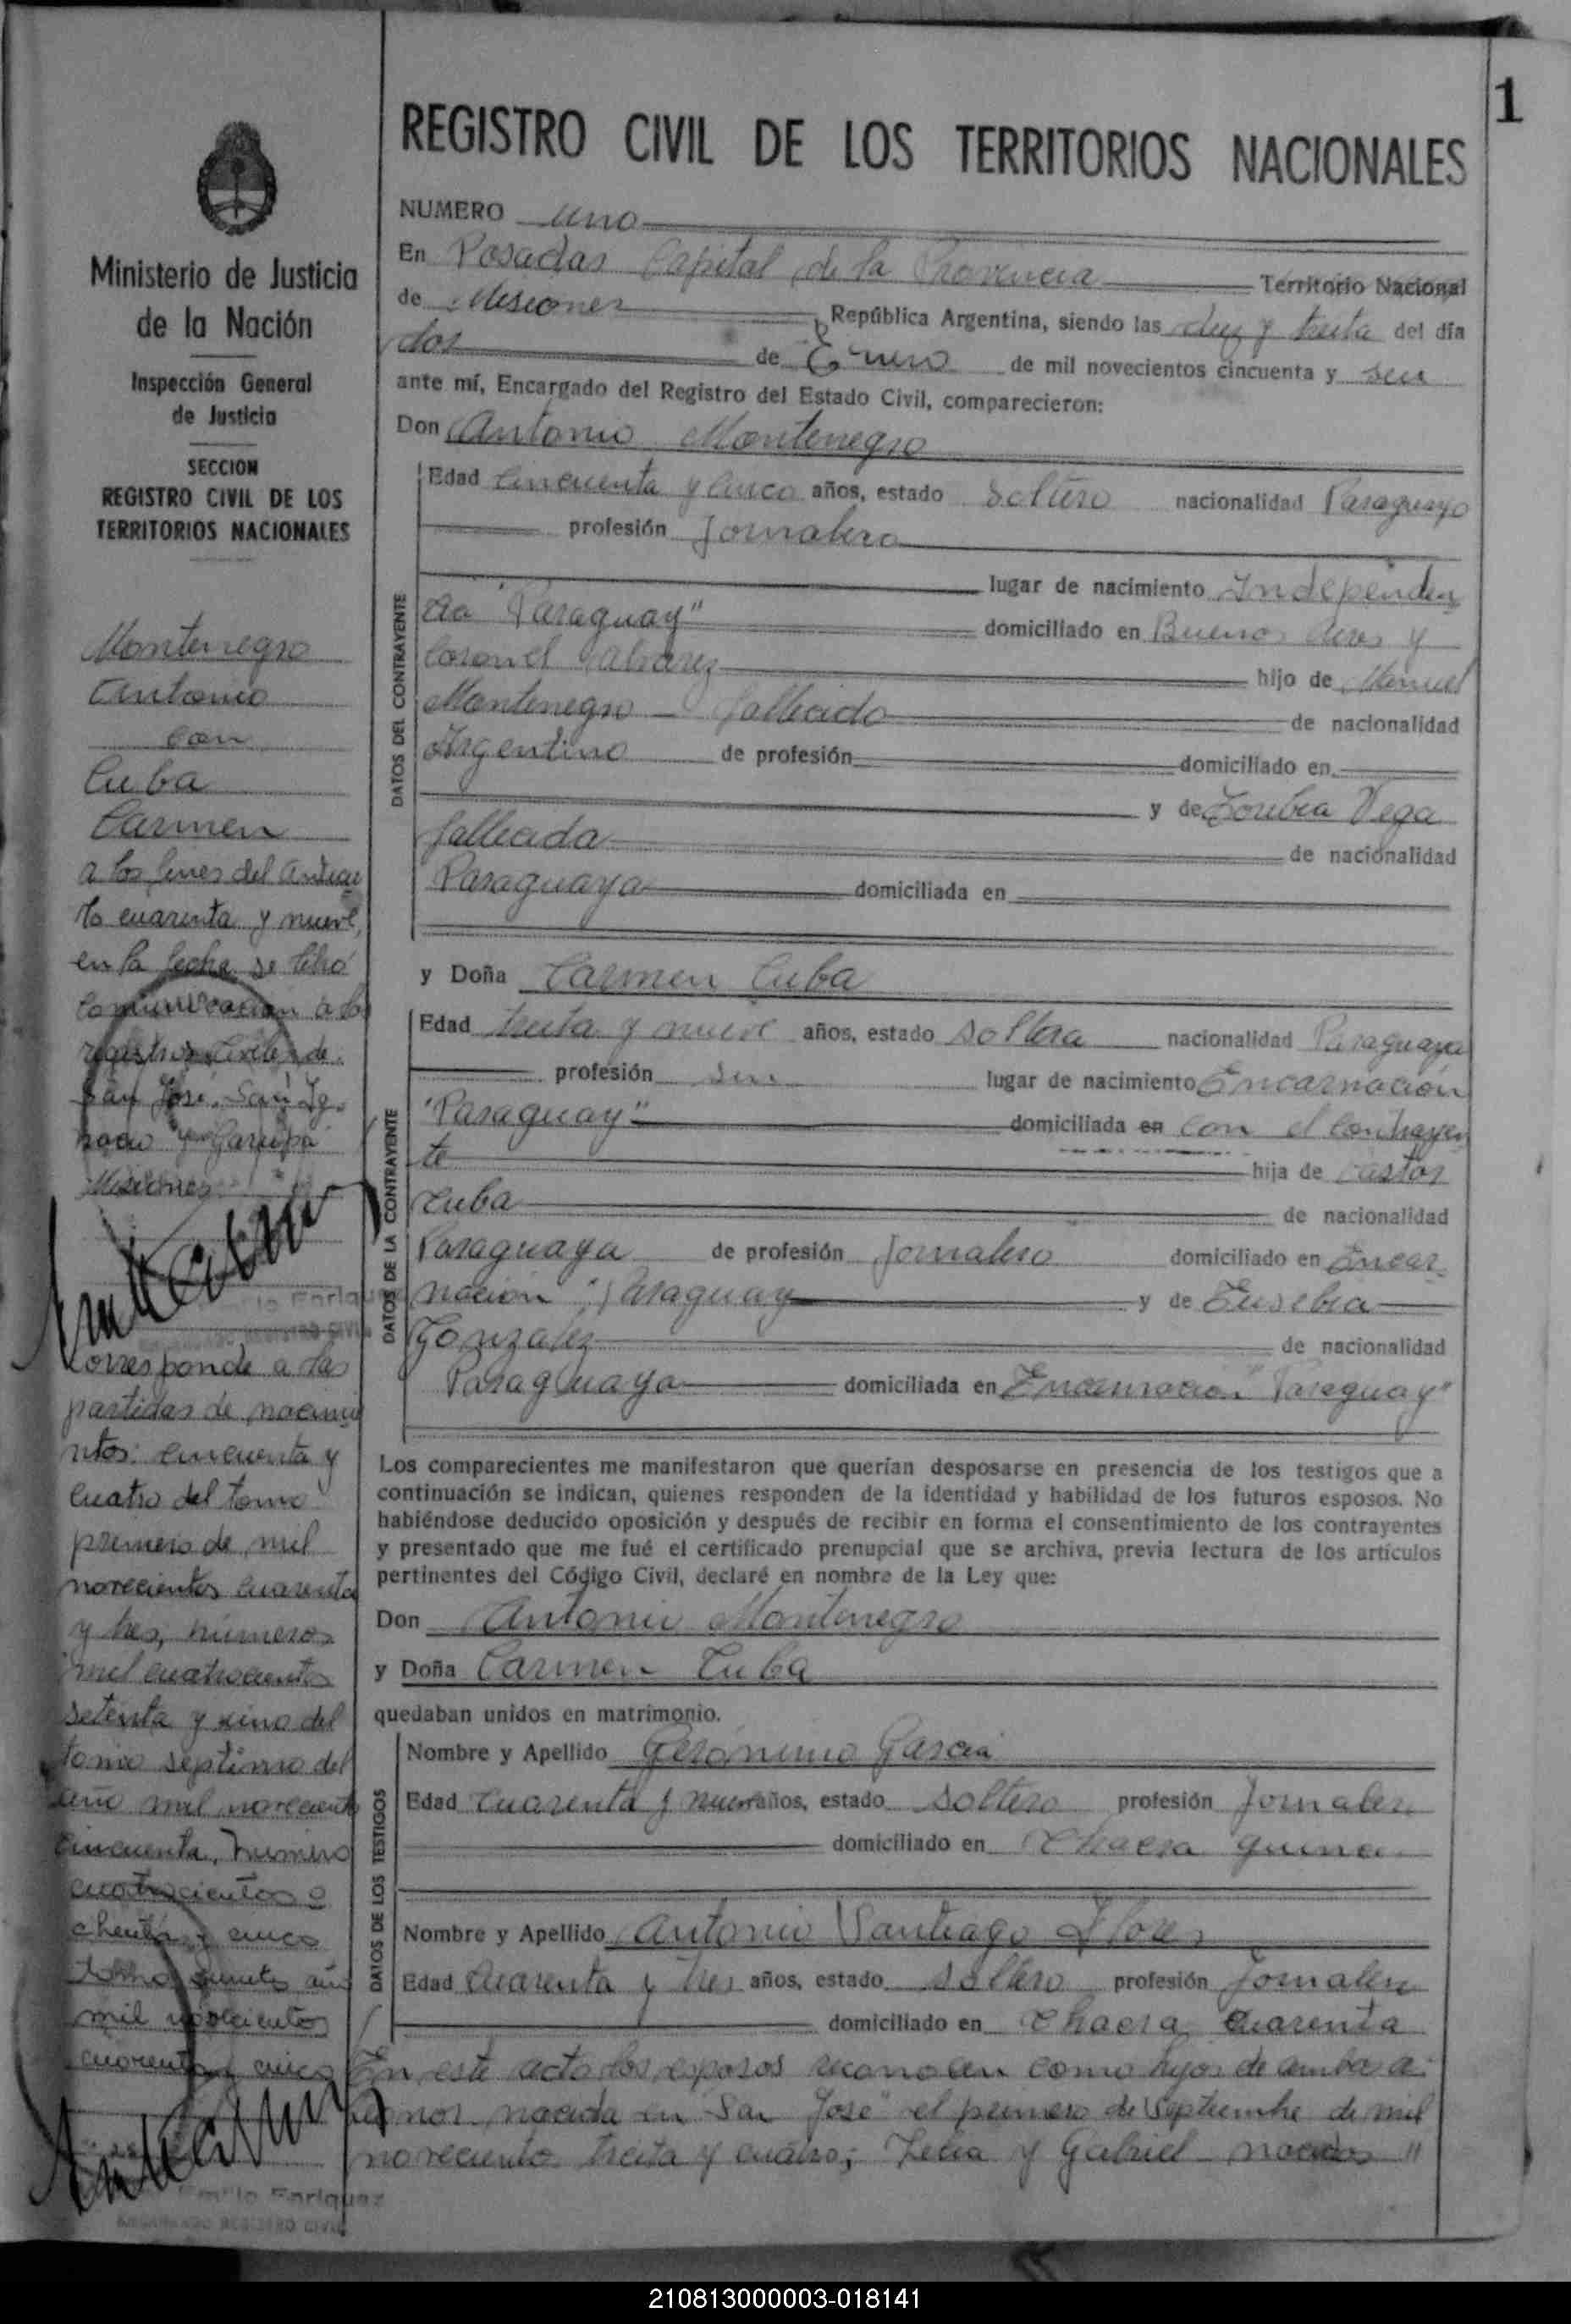 1
REGISTRO CIVIL DE LOS TERRITORIOS NACIONALES
Ministerio de Justicia
de la Nación
Inspección General
de Justicia
SECCION
REGISTRO CIVIL DE LOS
TERRITORIOS NACIONALES
Montenegro
Antonio
con
Cuba
Carmen
a los fines del articu
lo cuarenta y nueve,
en la fecha se libró
comunicación a los
registros civiles de
San José, San Ig-
nacio y Garupá
Misiones
Corresponde a las
partidas de nacimie
ntos: cincuenta y
cuatro del tomo
primero de mil
novecientos cuarenta
y tres, números
mil cuatrocientos
setenta y uno del
tomo septimo del
año mil novecientos
cincuenta, número
cuatrocientos o
chenta y cinco
tomo año
mil novecientos
cuarenta y cinco
Emilio Enriquez
ENCARGADO REGISTRO CIVIL
NUMERO uno
En Posadas Capital de la Provincia Territorio Nacional
de Misiones República Argentina, siendo las diez y treita del día
dos de Enero de mil novecientos cincuenta y seis
ante mí, Encargado del Registro del Estado Civil, comparecieron:
Don Antonio Montenegro
DATOS DEL CONTRAYENTE
Edad cincuenta y cinco años, estado soltero nacionalidad Paraguayo
profesión Jornalero
lugar de nacimiento Independen
cia "Paraguay" domiciliado en Buenos Aires y
Coronel Alvarez hijo de Manuel
Montenegro - fallecido de nacionalidad
Argentino de profesión domiciliado en
y de Toribia Vega
fallecida de nacionalidad
Paraguaya domiciliada en
y Doña Carmen Cuba
DATOS DE LA CONTRAYENTE
Edad treita y nueve años, estado soltera nacionalidad Paraguaya
profesión sin lugar de nacimiento Encarnación
"Paraguay" domiciliada en con el contrayen
te hija de Castor
Cuba de nacionalidad
Paraguaya de profesión Jornalero domiciliado en Encar-
nación "Paraguay y de Eusebia
Gonzalez de nacionalidad
Paraguaya domiciliada en Encarnación "Paraguay"
Los comparecientes me manifestaron que querían desposarse en presencia de los testigos que a
continuación se indican, quienes responden de la identidad y habilidad de los futuros esposos. No
habiéndose deducido oposición y después de recibir en forma el consentimiento de los contrayentes
y presentado que me fué el certificado prenupcial que se archiva, previa lectura de los artículos
pertinentes del Código Civil, declaré en nombre de la Ley que:
Don Antonio Montenegro
y Doña Carmen Cuba
quedaban unidos en matrimonio.
DATOS DE LOS TESTIGOS
Nombre y Apellido Gerónimo Garcia
Edad cuarenta y nueve años, estado soltero profesión Jornalero
domiciliado en Chacra quince
Nombre y Apellido Antonio Santiago Flores
Edad cuarenta y tres años, estado soltero profesión Jornalero
domiciliado en Chacra cuarenta
En este acto los esposos reconocen como hijos de ambos a:
Leonor nacida en "San José" el primero de Septiembre de mil
novecientos treita y cuatro; y Gabriel nacidos "
210813000003-018141